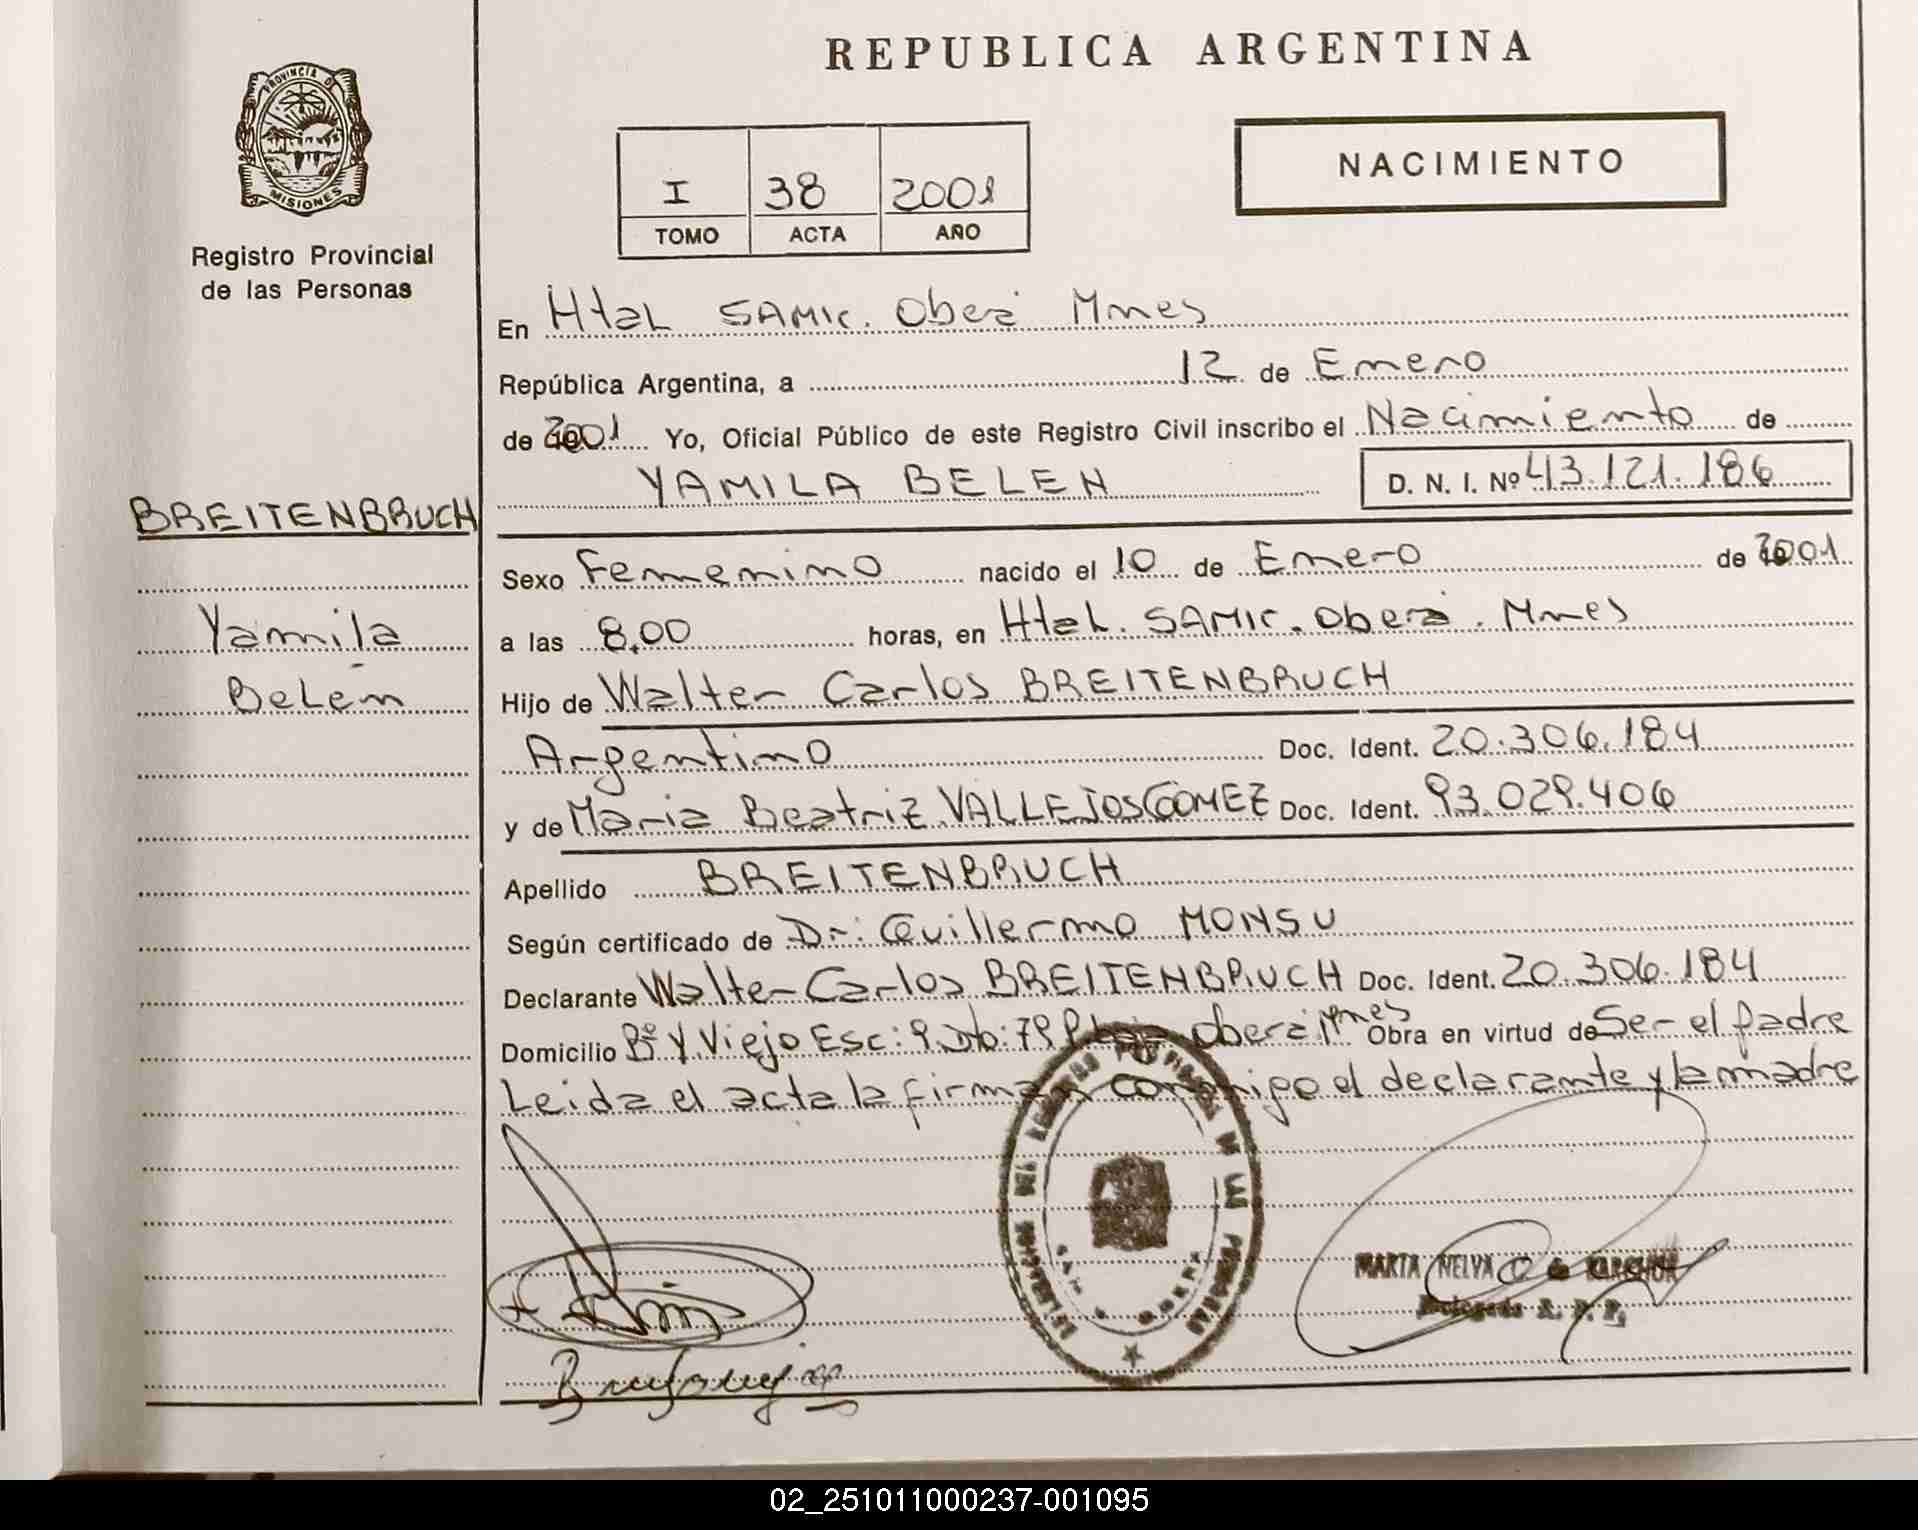 REPUBLICA ARGENTINA
PROVINCIA DE
MISIONES
Registro Provincial
de las Personas
NACIMIENTO
I 38 2001
TOMO ACTA AÑO
En Htal SAMIC. Oberá Mnes
República Argentina, a 12 de Enero
de 2001 Yo, Oficial Público de este Registro Civil inscribo el Nacimiento de
YAMILA BELEN D. N. I. Nº 43.121.186
BREITENBRUCH
Yamila
Belén
Sexo Femenino nacido el 10 de Enero de 2001
a las 8,00 horas, en Htal. SAMIC. Oberá. Mnes
Hijo de Walter Carlos BREITENBRUCH
Argentino Doc. Ident. 20.306.184
y de Maria Beatriz VALLEJOS GOMEZ Doc. Ident. 93.029.406
Apellido BREITENBRUCH
Según certificado de Dr: Guillermo MONSU
Declarante Walter Carlos BREITENBRUCH Doc. Ident. 20.306.184
Domicilio Bº Y. Viejo Esc: 9 Dto: 79 oberá Mnes Obra en virtud de Ser el padre
Leida el acta la firman conmigo el declarante y la madre
MARTA NELVA
Delegada R. P. P.
02_251011000237-001095